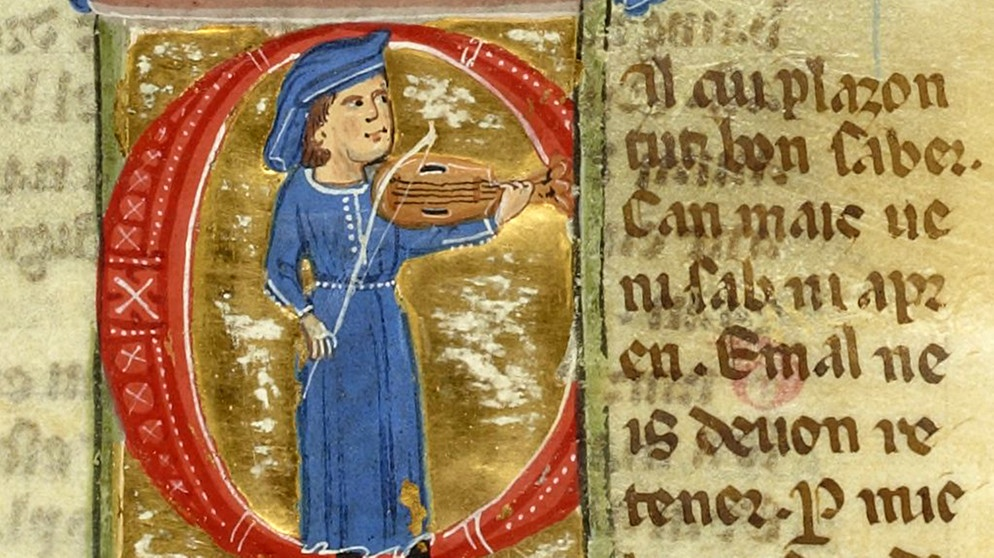 Al cui plazon
tut bon saber.
Can mais ue
ni sab ni apr
en. E mal ne
is deuon re
tener. P mie